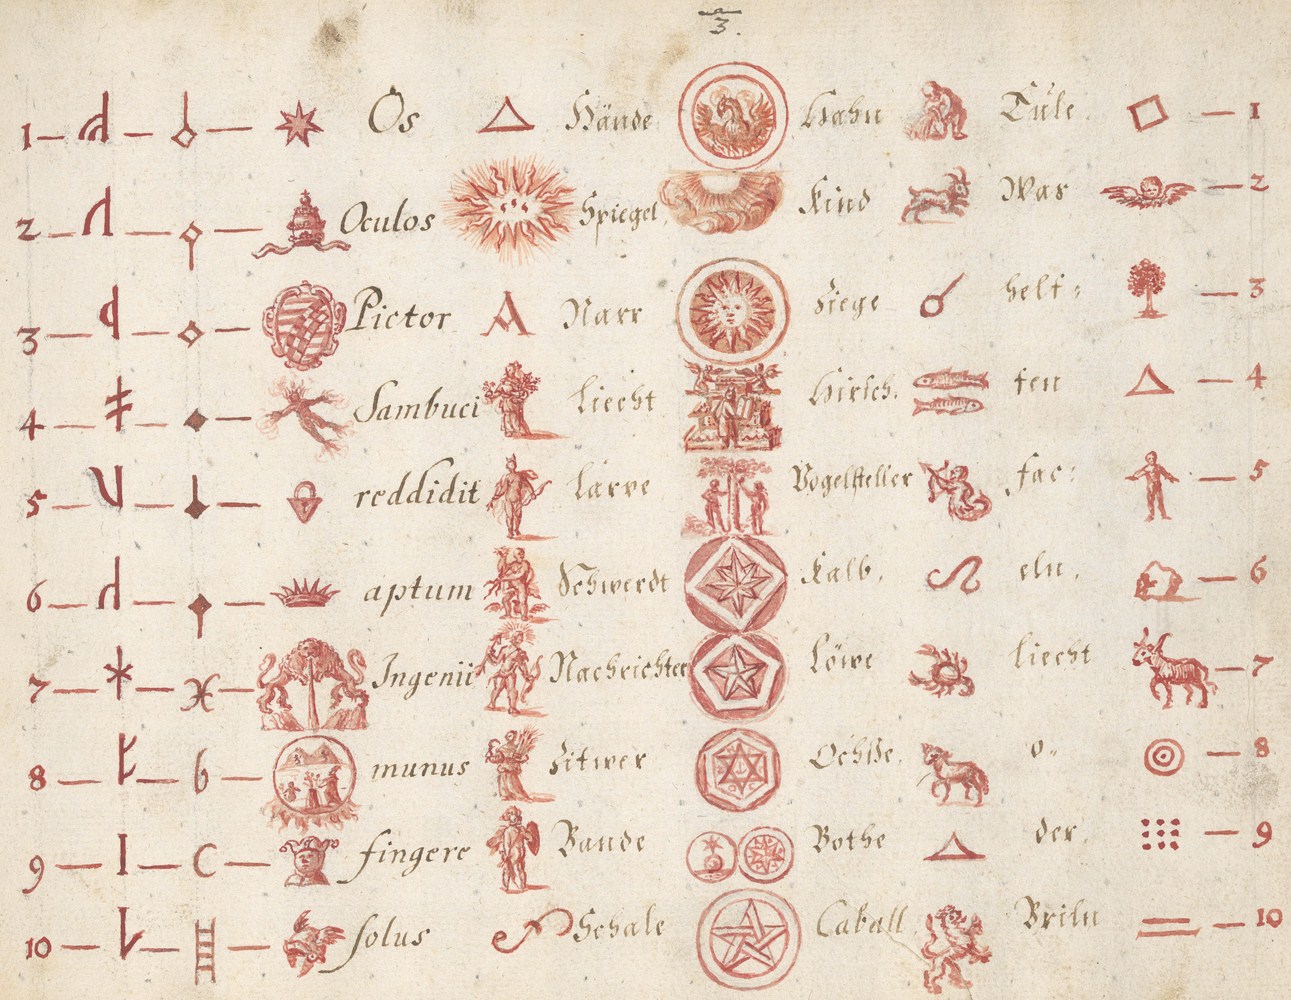 3.
1 Os Hände Hahn 1
2 Oculos Spiegel Kind Was 2
3 Pictor Narr helt: 3
4 Sambuci Liecht Hirsch. ten 4
5 reddidit Larve Vogelsteller fac: 5
6 aptum Schwerdt Kalb. eln. 6
7 Ingenii Nachrichter Löwe Liecht 7
8 munus Zitwer Ochße. o- 8
9 C fingere Bande Bothe der. 9
10 solus Schale Caball 10